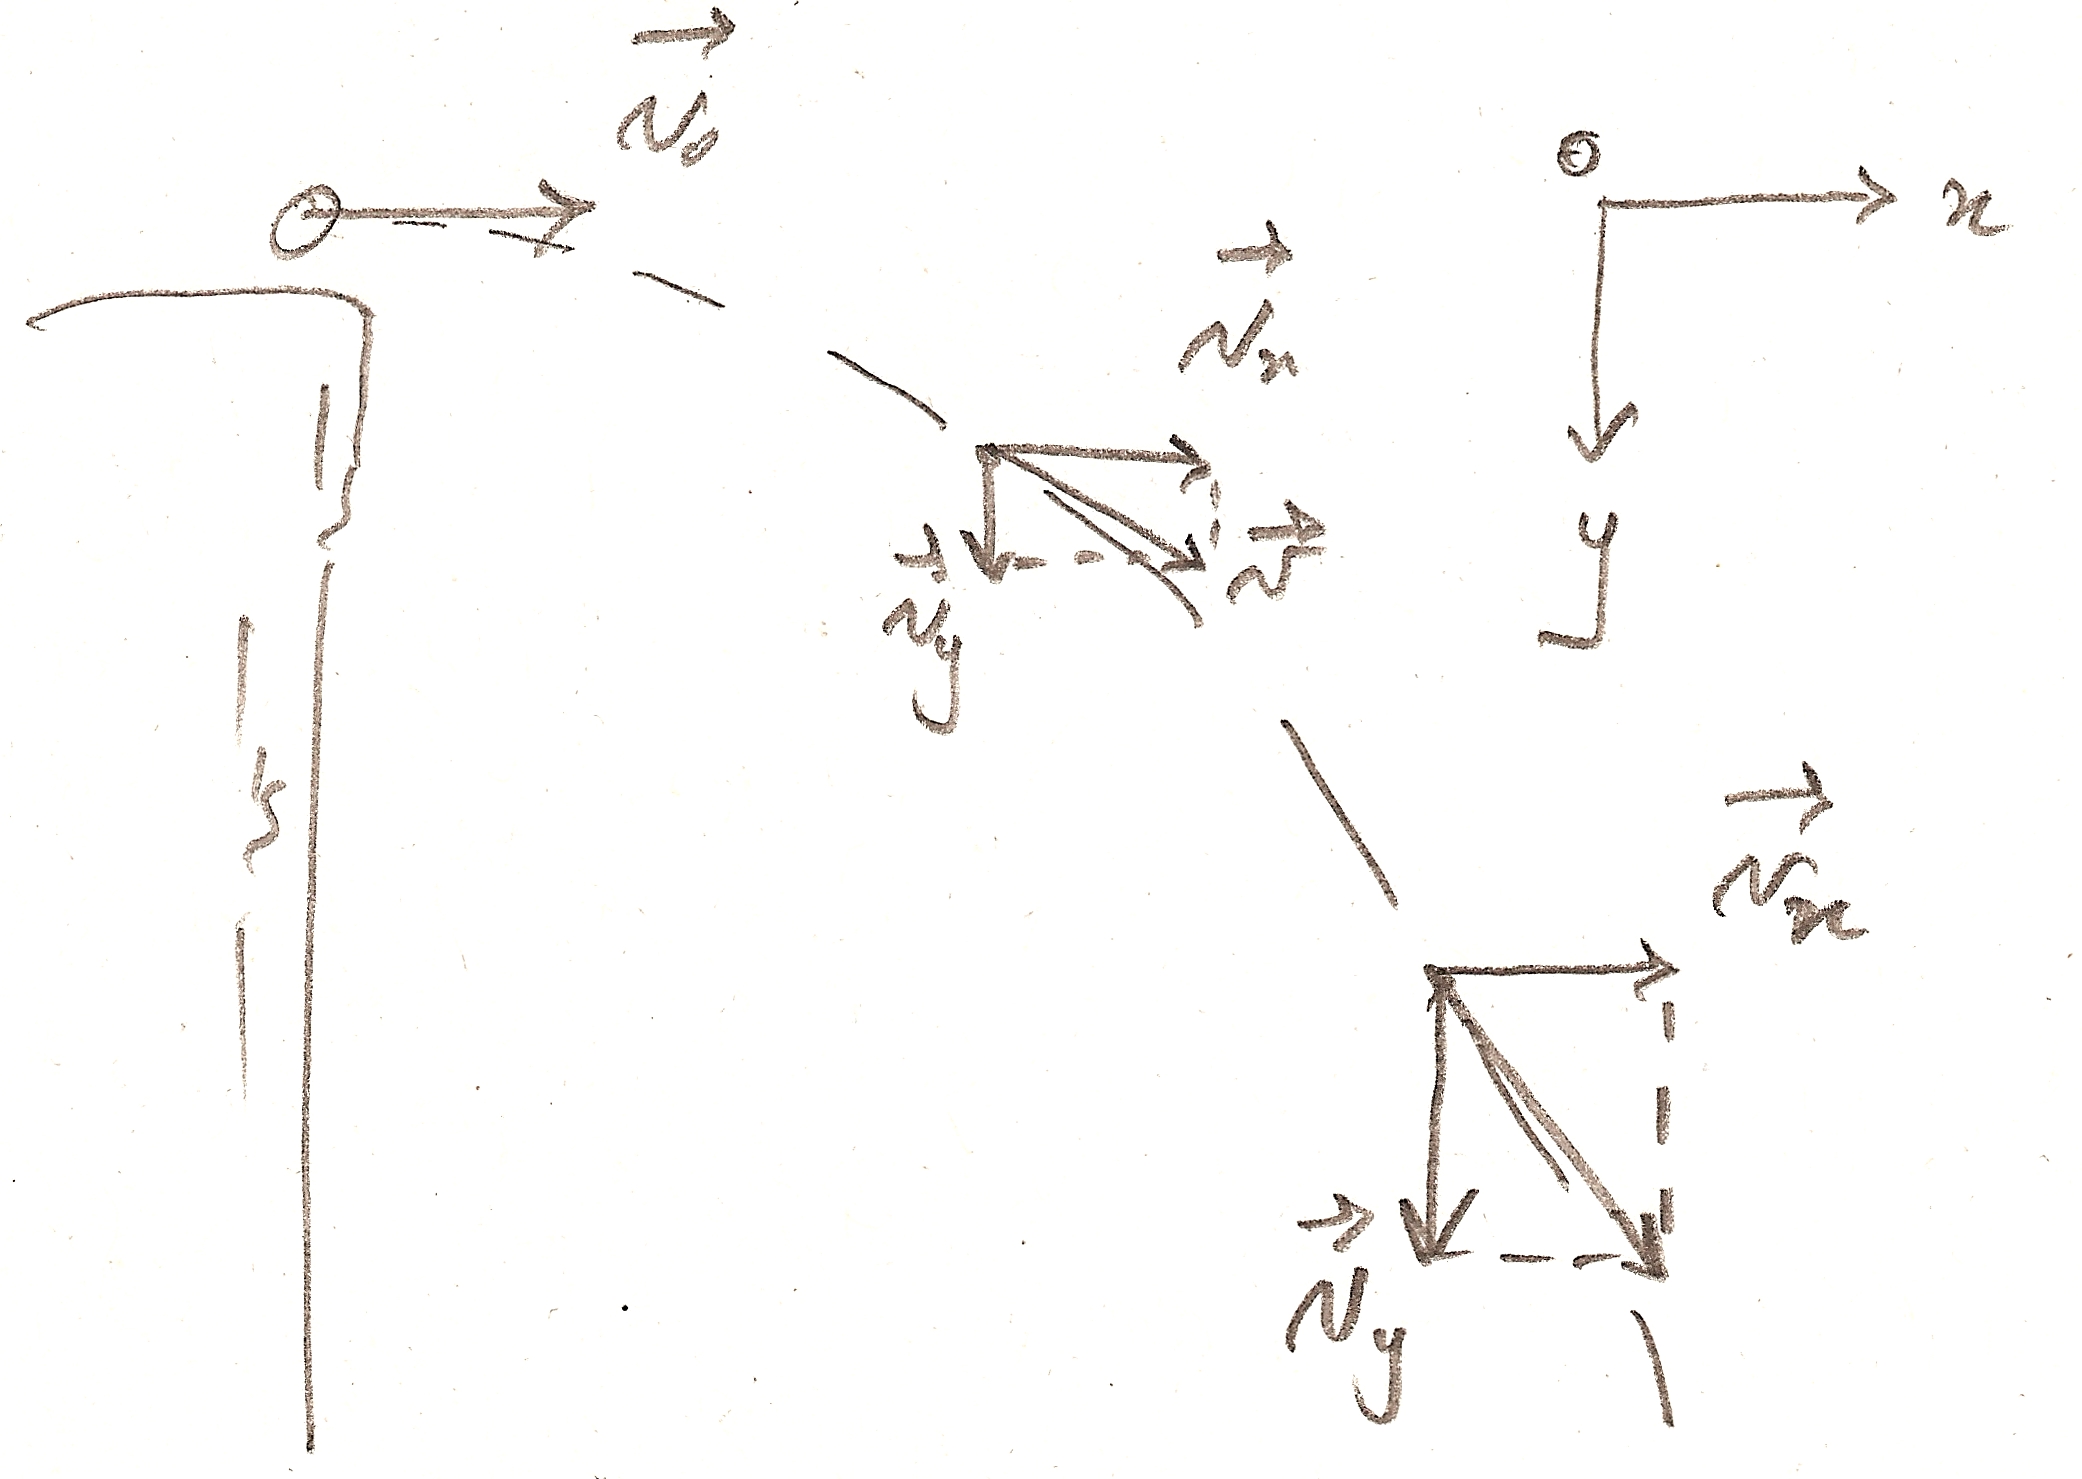 v₀
O
x
vₓ
y
v
v_y
vₓ
v_y